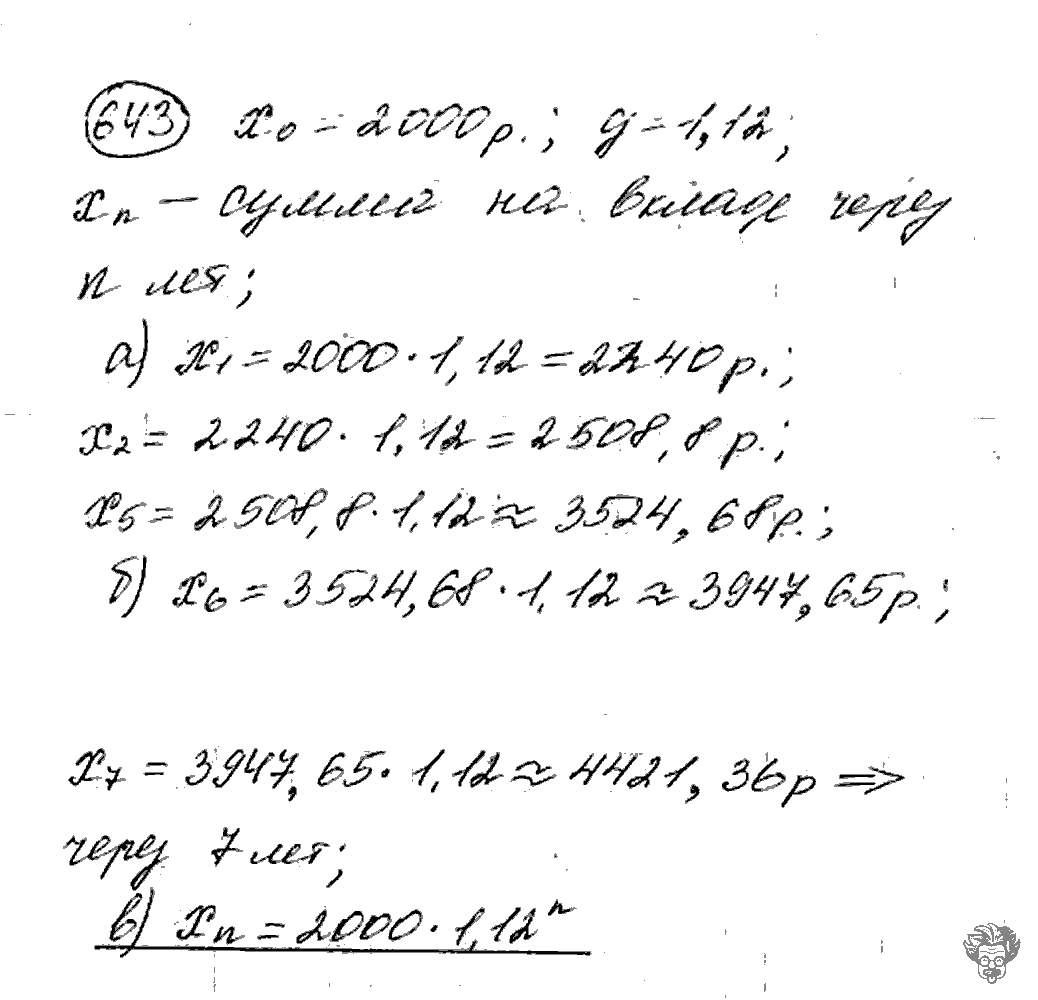 643 x₀ = 2000р.; g = 1,12;
xₙ — сумма на вкладе через
n лет;
а) x₁ = 2000 · 1,12 = 2240р.;
x₂ = 2240 · 1,12 = 2508,8р.;
x₅ = 2508,8 · 1,12 ≈ 3524,68р.;
б) x₆ = 3524,68 · 1,12 ≈ 3947,65р.;
x₇ = 3947,65 · 1,12 ≈ 4421,36р ⇒
через 7 лет;
в) xₙ = 2000 · 1,12ⁿ